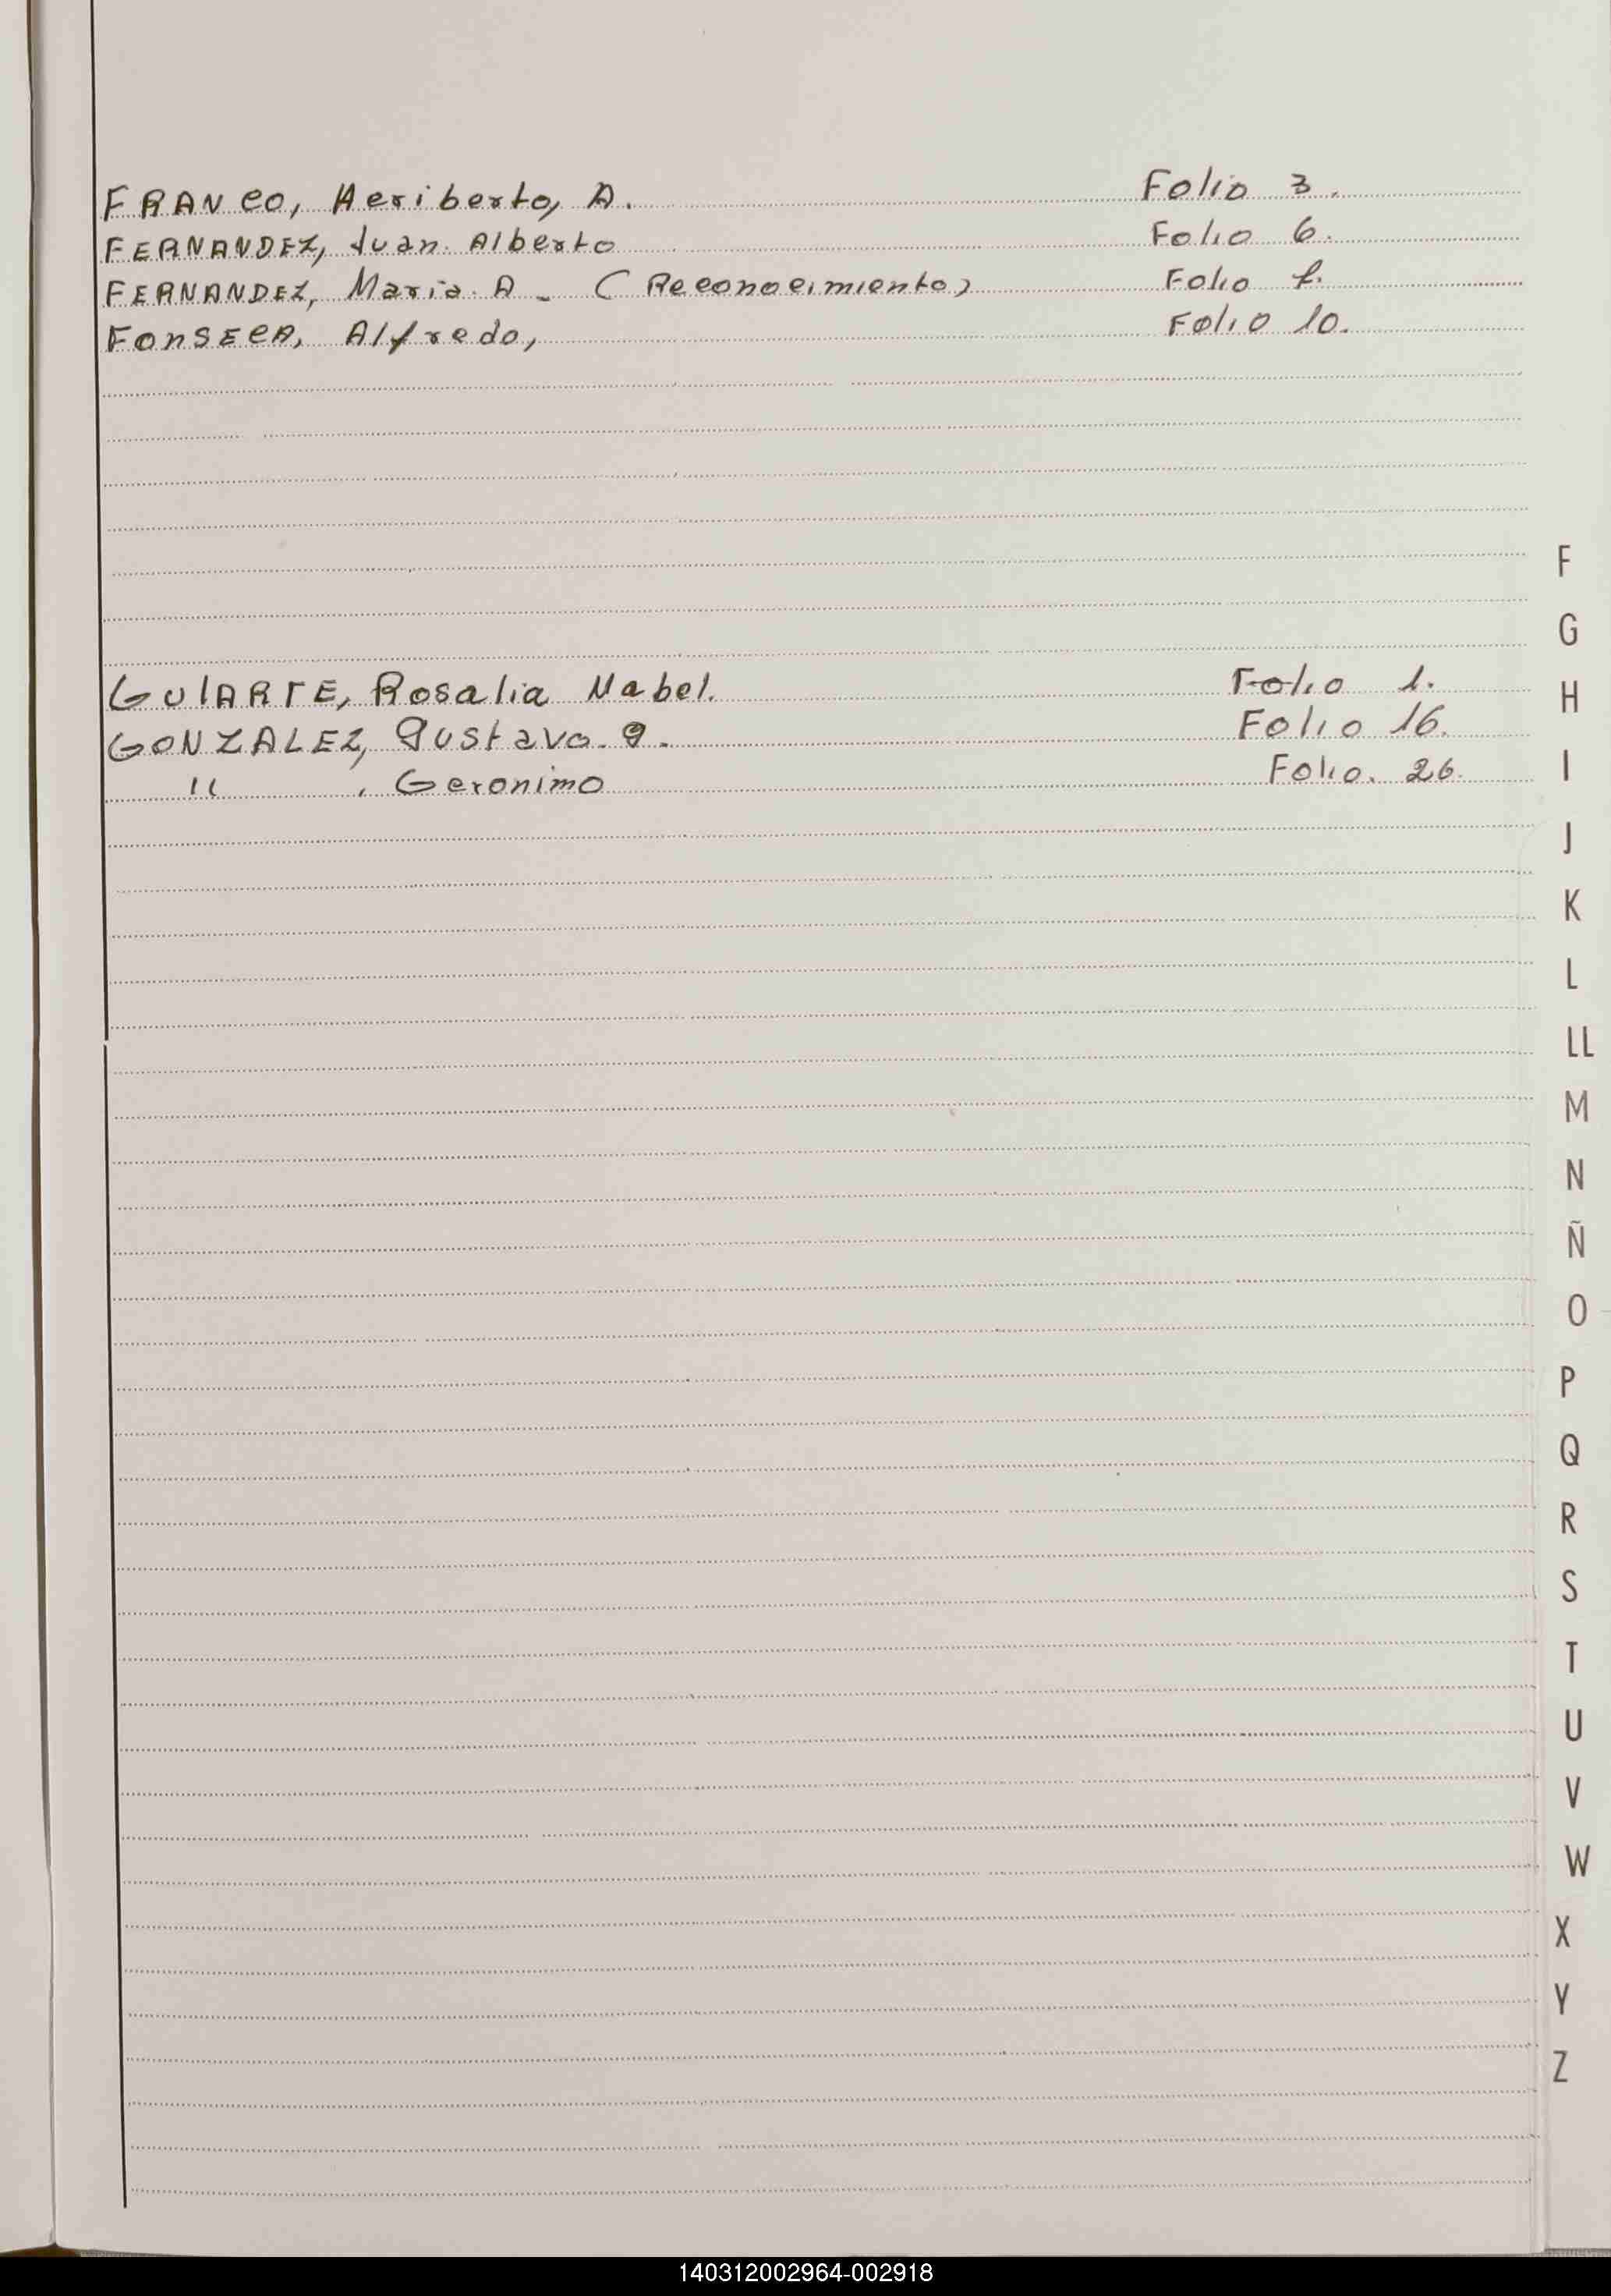 FRANCO, Heriberto, A. Folio 3.
FERNANDEZ, Juan. Alberto Folio 6.
FERNANDEZ, Maria. A - (Reconocimiento) Folio
FONSECA, Alfredo, Folio 10.
GULARTE, Rosalia Mabel. Folio 1.
GONZALEZ, Gustavo. G. Folio 16.
" , Geronimo Folio. 26.
F
G
H
I
J
K
L
LL
M
N
Ñ
O
P
Q
R
S
T
U
V
W
X
Y
Z
140312002964-002918